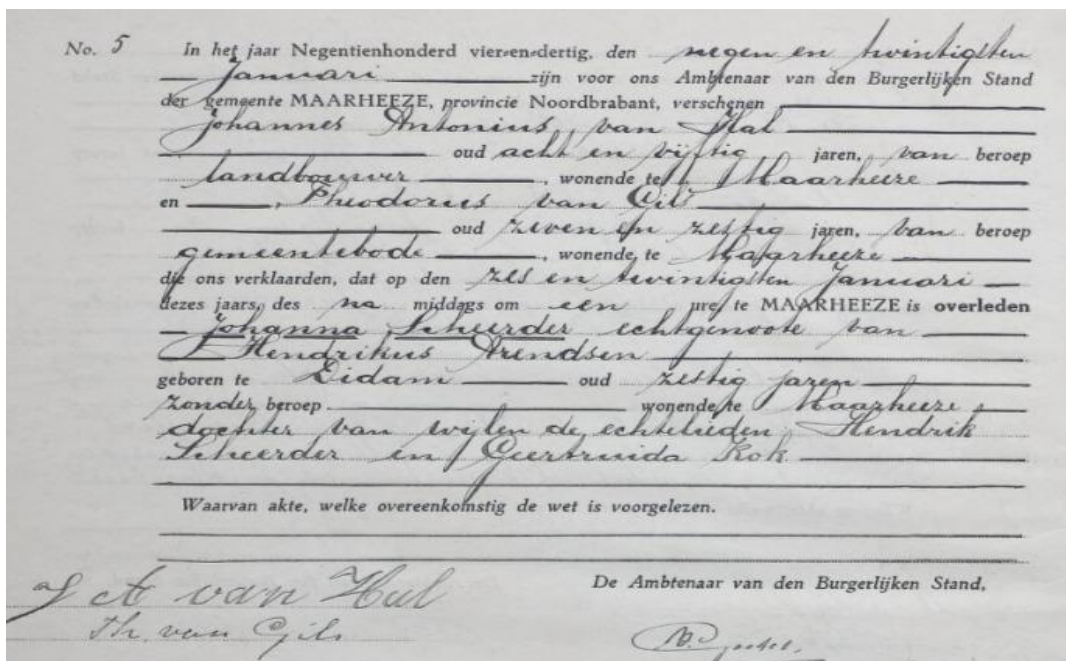 No. 5 In het jaar Negentienhonderd vier-en-dertig, den negen en twintigsten
Januari zijn voor ons Ambtenaar van den Burgerlijken Stand
der gemeente MAARHEEZE, provincie Noordbrabant, verschenen
Johannes Antonius van Hal
oud acht en vijftig jaren, van beroep
landbouwer, wonende te Maarheeze
en, Theodorus van Gils
oud zeven en zestig jaren, van beroep
gemeentebode, wonende te Maarheeze
die ons verklaarden, dat op den zes en twintigsten Januari
dezes jaars, des na middags om een ure, te MAARHEEZE is overleden
Johanna Scheerder echtgenoote van
Hendrikus Arendsen
geboren te Didam oud zestig jaren
zonder beroep wonende te Maarheeze,
dochter van wijlen de echtelieden Hendrik
Scheerder en Geertruida Kok
Waarvan akte, welke overeenkomstig de wet is voorgelezen.
De Ambtenaar van den Burgerlijken Stand,
J A van Hal
Th. van Gils